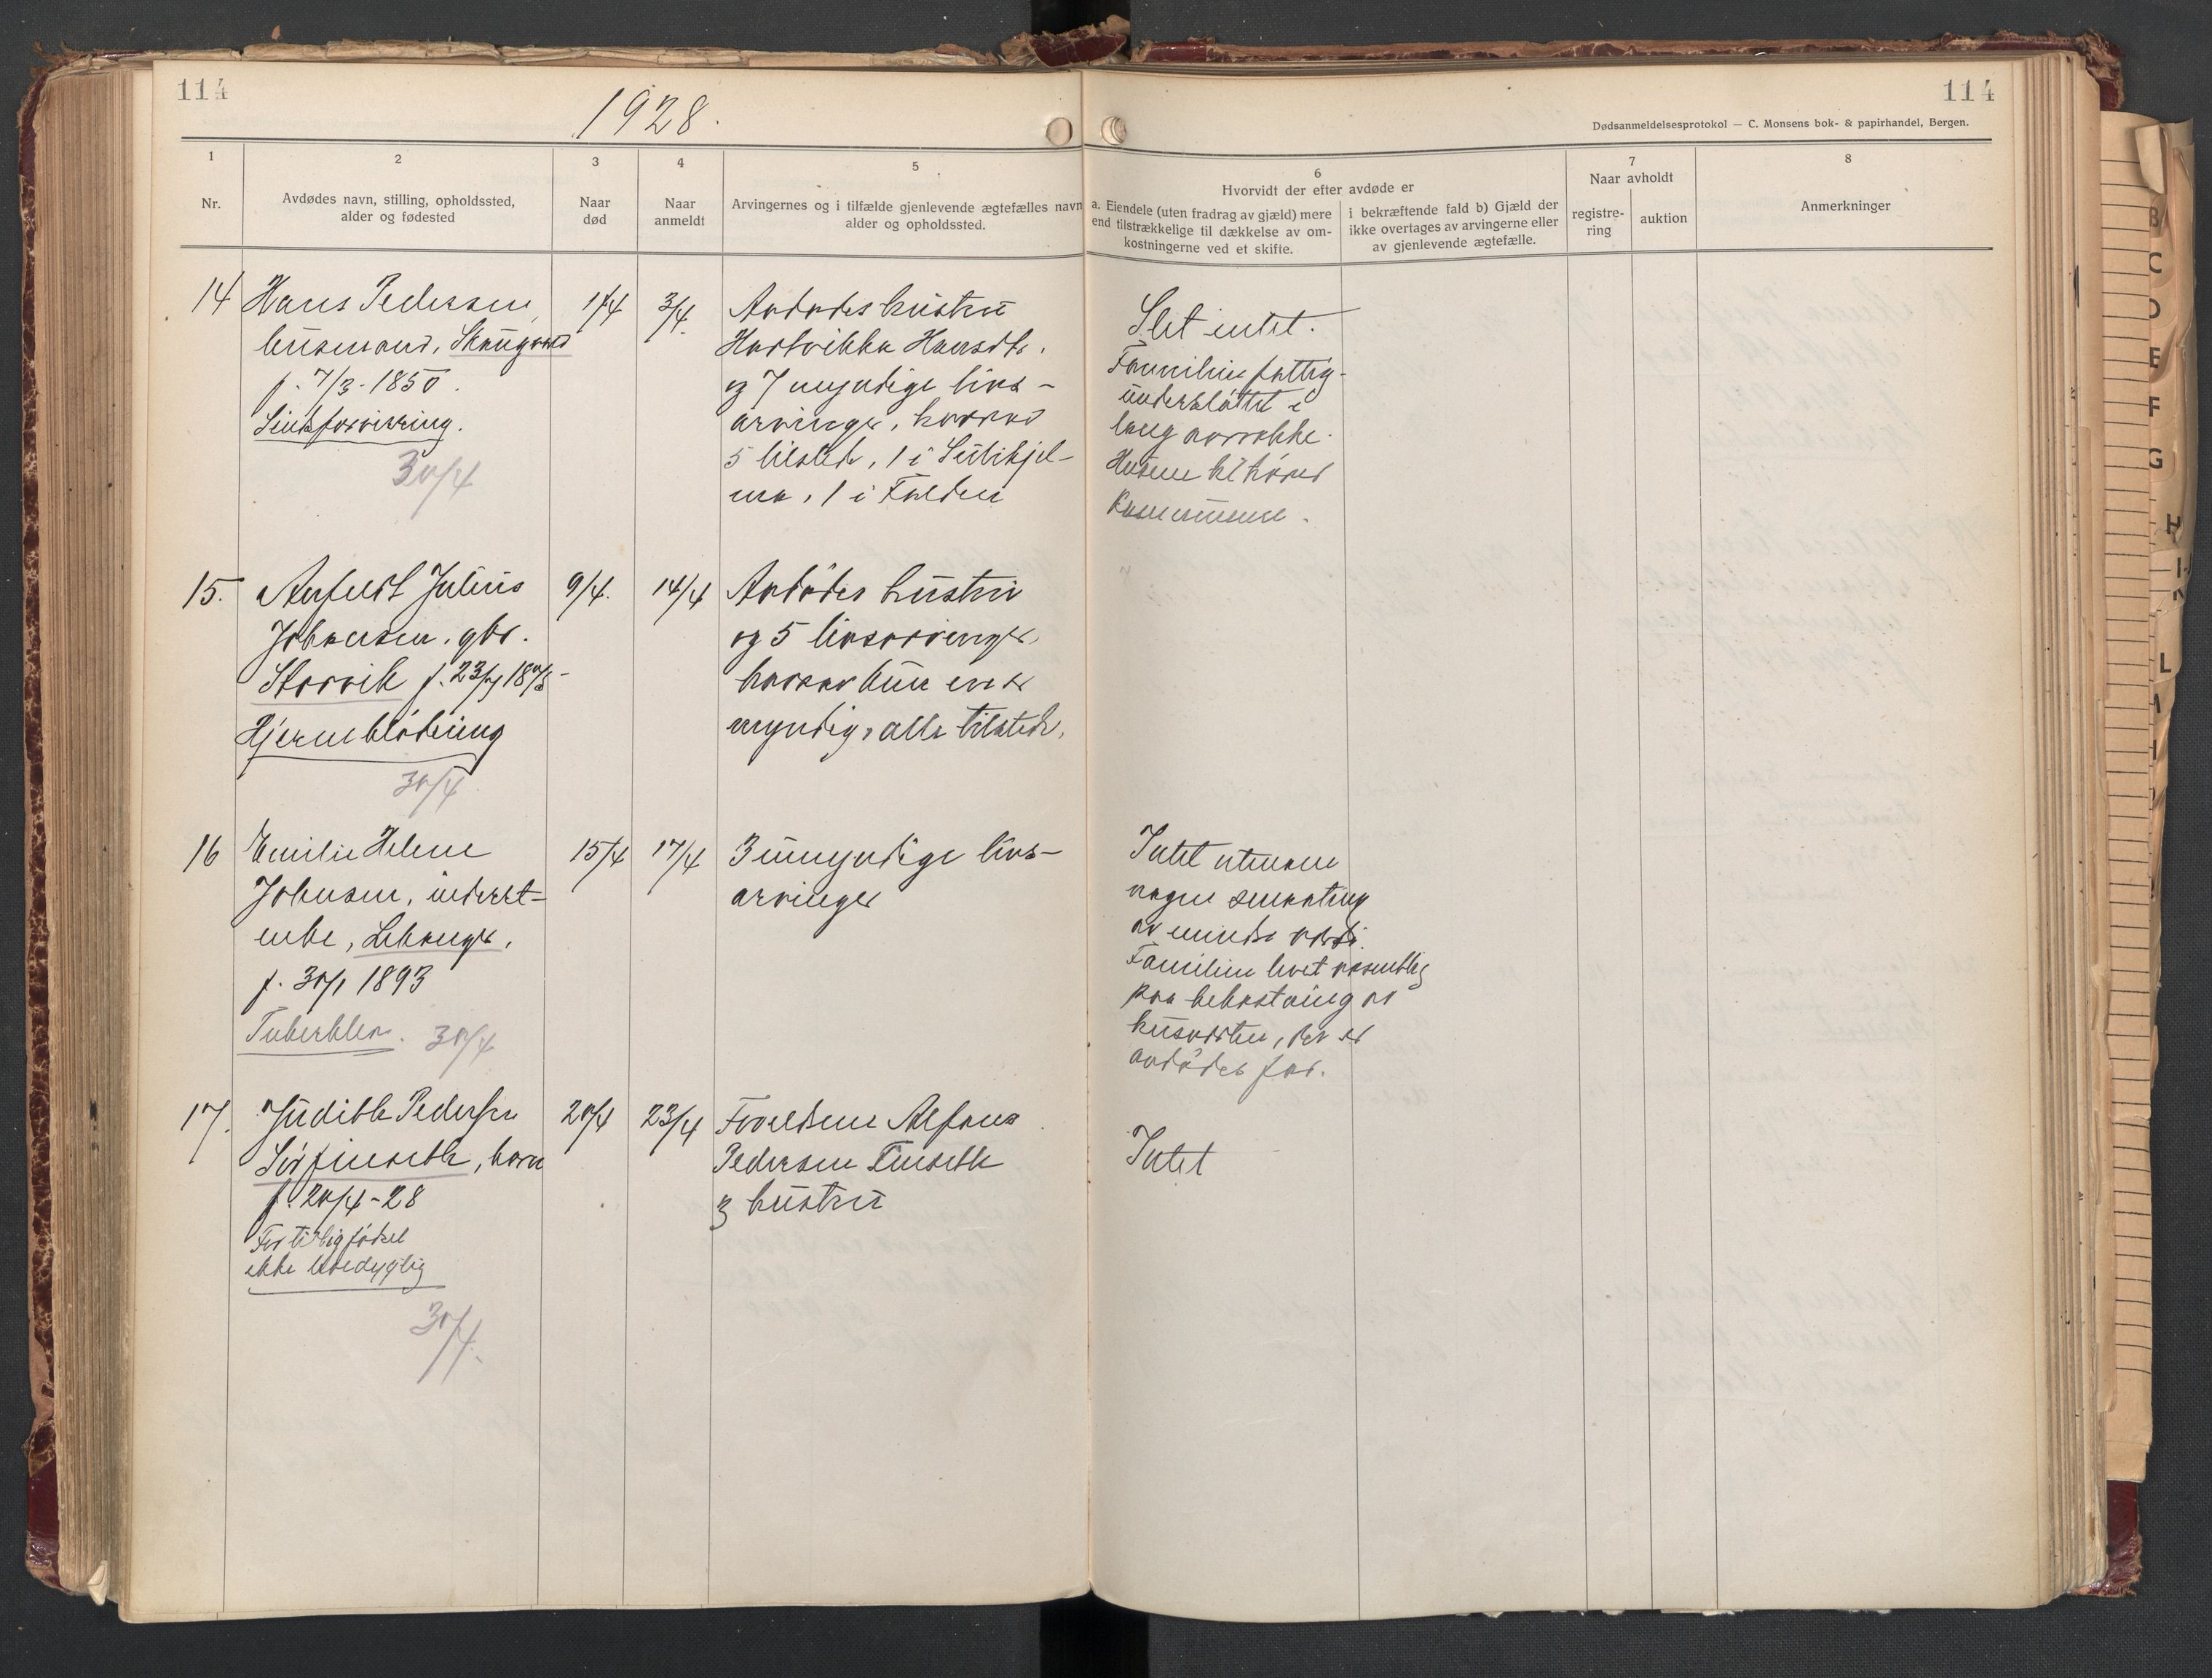 114
1928.
114
Dødsanmeldelsesprotokol — C. Monsens bok- & papirhandel, Bergen.
1
Nr.
2
Avdødes navn, stilling, opholdssted,
alder og fødested
3
Naar
død
4
Naar
anmeldt
5
Arvingernes og i tilfælde gjenlevende ægtefælles navn
alder og opholdssted.
6
Hvorvidt der efter avdøde er
a. Eiendele (uten fradrag av gjæld) mere
end tilstrækkelige til dækkelse av om-
kostningerne ved et skifte.
i bekræftende fald b) Gjæld der
ikke overtages av arvingerne eller
av gjenlevende ægtefælle.
7
Naar avholdt
registre-
ring
auktion
8
Anmerkninger
14
Hans Pedersen,
husmand, Skaugvold
f. 7/3-1850.
Sindsforvirring.
30/4
1/4
3/4.
Avdødes hustru
Hartvikka Hansdtr.
og 7 myndige livs-
arvinger, hvorav
5 tilstede, 1 i Sulitjel-
ma, 1 i Folden
Slet intet.
Familien fattig-
understøttet i
lang aarrække.
Husene tilhører
kommunen.
15.
Julius
Johansen, gbr.
Storvik f. 23/7 1875
Hjerneblødning
30/4
9/4.
14/4
Avdødes hustru
og 5 livsarvinger,
hvorav kun en er
myndig, alle tilstede.
16
Emilie Helene
Johnsen, inderst-
enke, Lekanger.
f. 30/1 1893
Tuberklen.
30/4
15/4
17/4
3 umyndige livs-
arvinger
Intet utenom
nogen smaating
av mindre verdi.
Familien levet væsentlig
paa bekostning av
husverten, der er
avdødes far.
17.
Judith Pedersen
Sørfinseth, barn
f. 20/4-28
For tidlig fødsel
ikke levedygtig
30/4.
20/4
23/4
Forældrene Alfons
Pedersen Finseth
og hustru
Intet
B
C
D
E
F
G
H
L